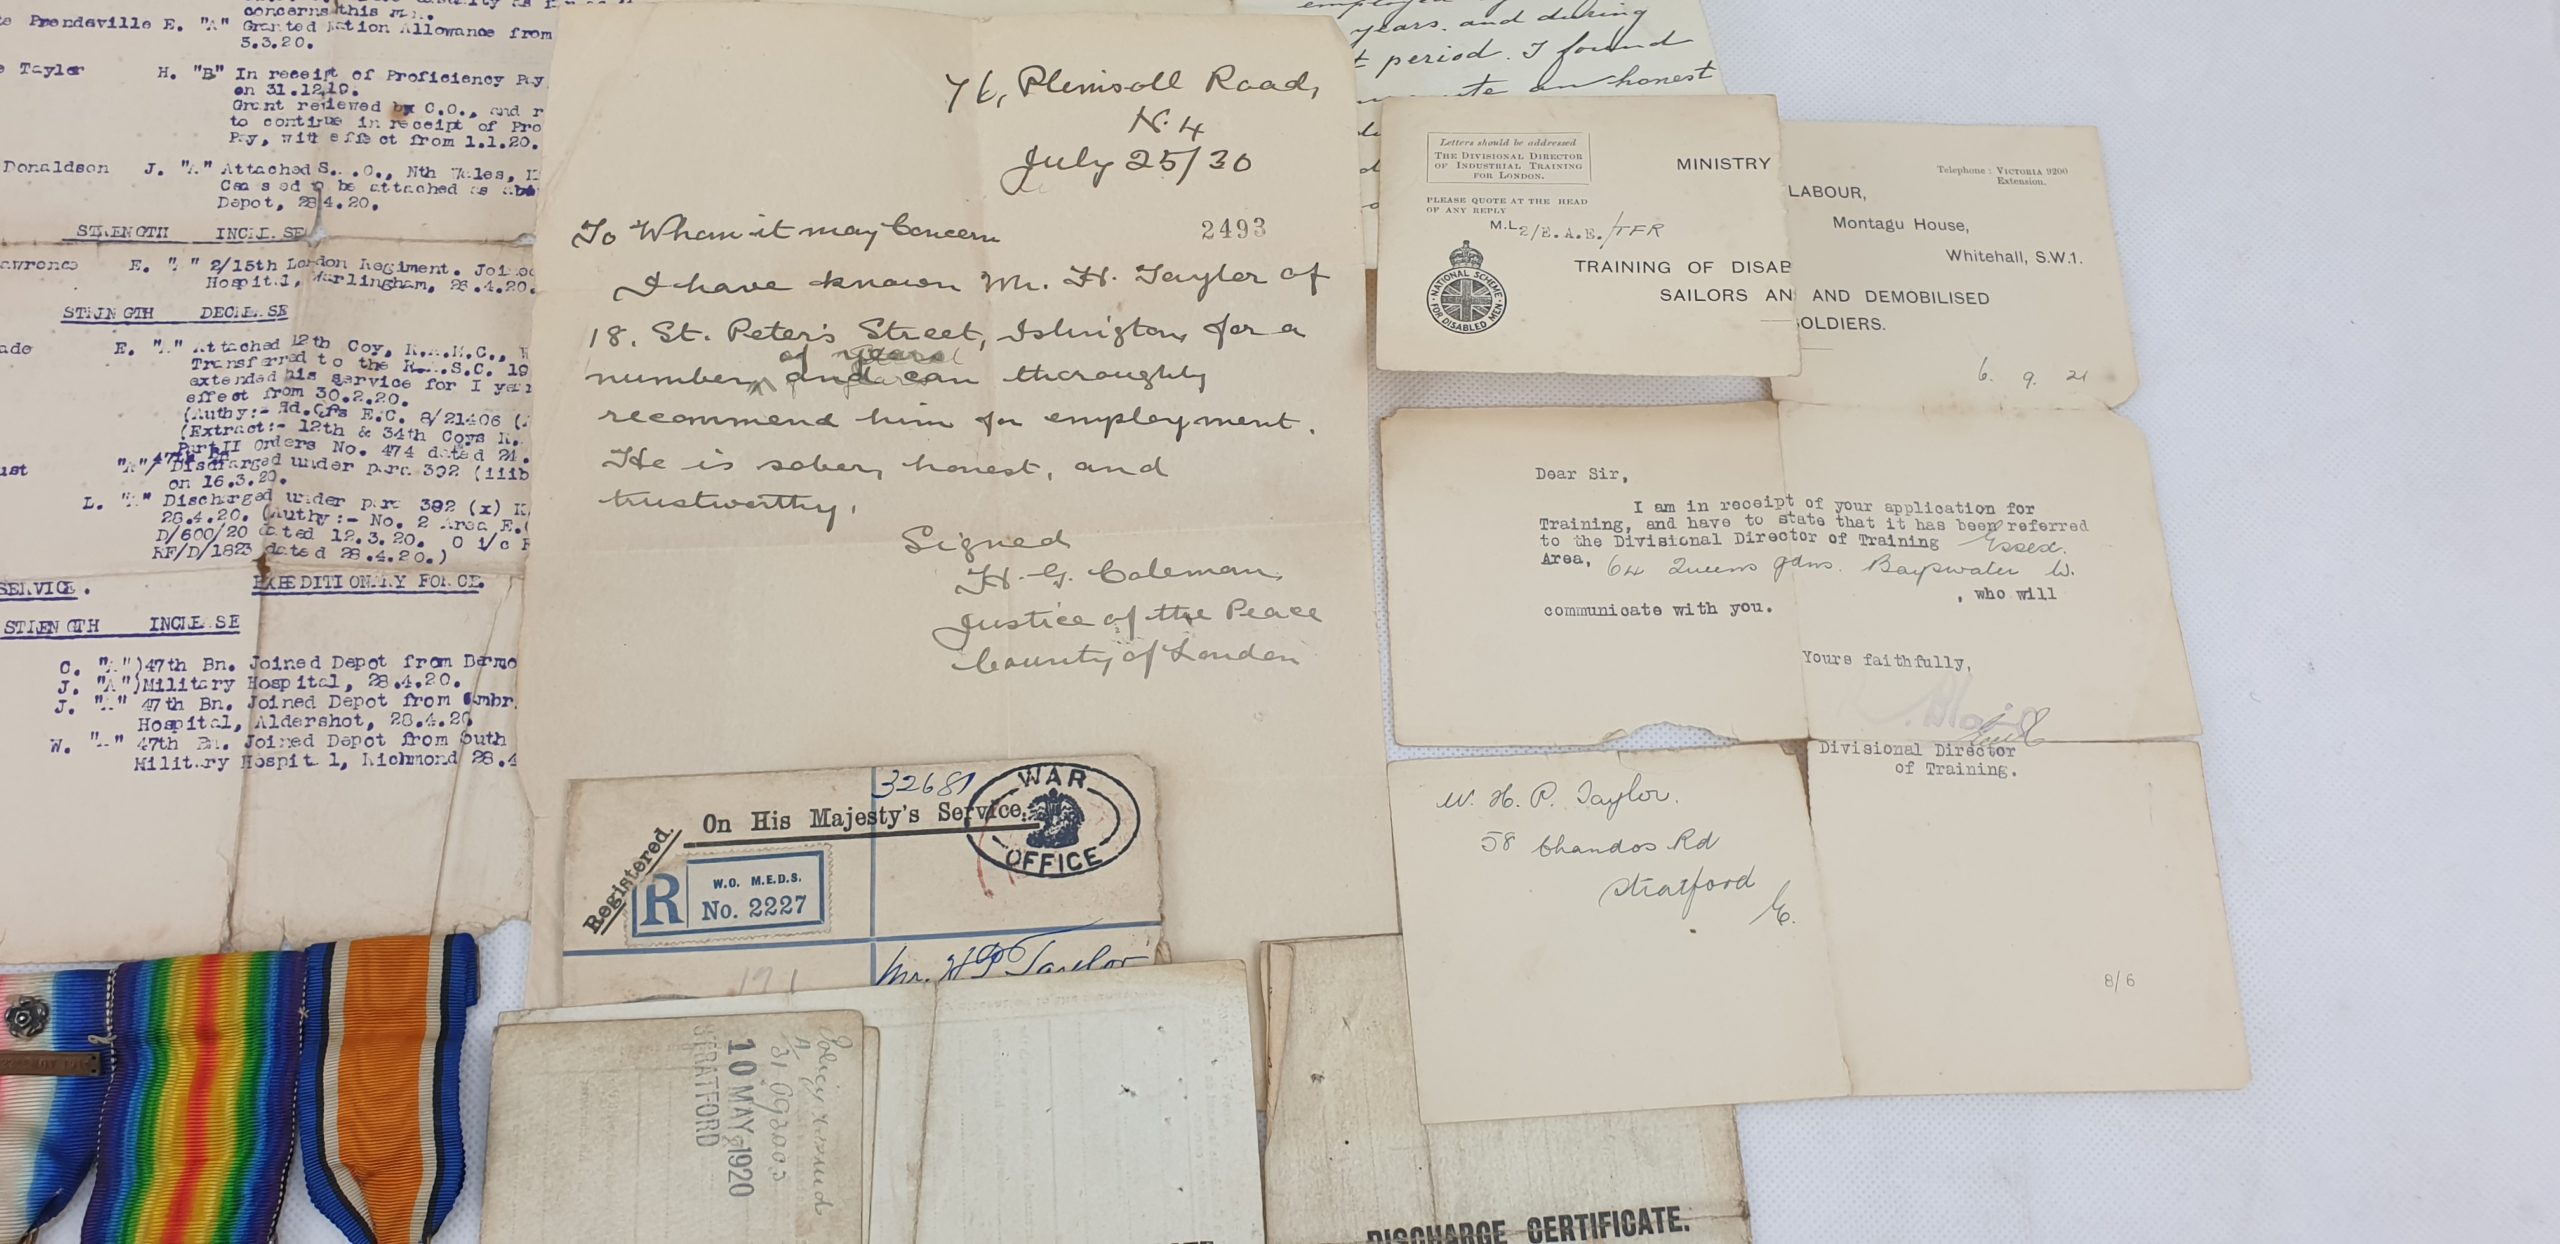 concerns this
Prendeville E. "A" Granted Ration Allowance from
5.3.20.
Tayler H. "B" In receipt of Proficiency Pay
on 31.12.19.
Grant reviewed by C.O., and
to continue in receipt of Pro
Pay, with effect from 1.1.20.
Donaldson J. "A" Attached
Ceased to be attached as
Depot, 28.4.20.
STRENGTH INCREASE
E. 2/15th London Regiment.
Hospital, Warlingham, 28.4.20.
STRENGTH DECREASE
E. "A" Attached 12th Coy, R.A.M.C.,
Transferred to the R.A.S.C. 19
extended his service for I year
effect from 30.2.20.
(Authy:- Hd.Qrs E.C. 8/21406
(Extract:- 12th & 34th Coys
Part II Orders No. 474 dated 24.
Discharged under para 392 (iiib
on 16.3.20.
L. Discharged under para 392 (x) K
28.4.20. (Authy:- No. 2 Area E.
D/600/20 dated 12.3.20. O i/c
RF/D/1823 dated 28.4.20.)
SERVICE. EXPEDITIONARY FORCE.
STRENGTH INCREASE
C. "A") 47th Bn. Joined Depot from Bermo
J. "A") Military Hospital, 28.4.20.
J. "A" 47th Bn. Joined Depot from Cambr
Hospital, Aldershot, 28.4.20
W. 47th Bn. Joined Depot from South
Military Hospital, Richmond 28.4
Plimsoll Road,
N. 4
July 25/30
To Whom it may Concern
2493
I have known Mr. H. Tayler of
18. St. Peter's Street, Islington, for a
of years
number and can thoroughly
recommend him for employment.
He is sober, honest, and
trustworthy.
Signed
H. G. Coleman
Justice of the Peace
County of London
32681
WAR
OFFICE
On His Majesty's Service.
Registered.
R
W.O. M.E.D.S.
No. 2227
Mr. H P Taylor
10 MAY 1920
STRATFORD
years. and during
period. I found
an honest
Letters should be addressed
THE DIVISIONAL DIRECTOR
OF INDUSTRIAL TRAINING
FOR LONDON.
PLEASE QUOTE AT THE HEAD
OF ANY REPLY
M.L. 2/E.A.E./TFR
NATIONAL SCHEME
FOR DISABLED MEN
MINISTRY
LABOUR,
Telephone: VICTORIA 9200
Extension.
Montagu House,
Whitehall, S.W.1.
TRAINING OF DISAB
SAILORS AN AND DEMOBILISED
SOLDIERS.
6. 9. 21
Dear Sir,
I am in receipt of your application for
Training, and have to state that it has been referred
to the Divisional Director of Training Essex.
Area, 64 Queens gdns. Bayswater W.
, who will
communicate with you.
Yours faithfully,
Divisional Director
of Training.
W. H. P. Taylor.
58 Chandos Rd
Stratford
E.
8/6
DISCHARGE CERTIFICATE.